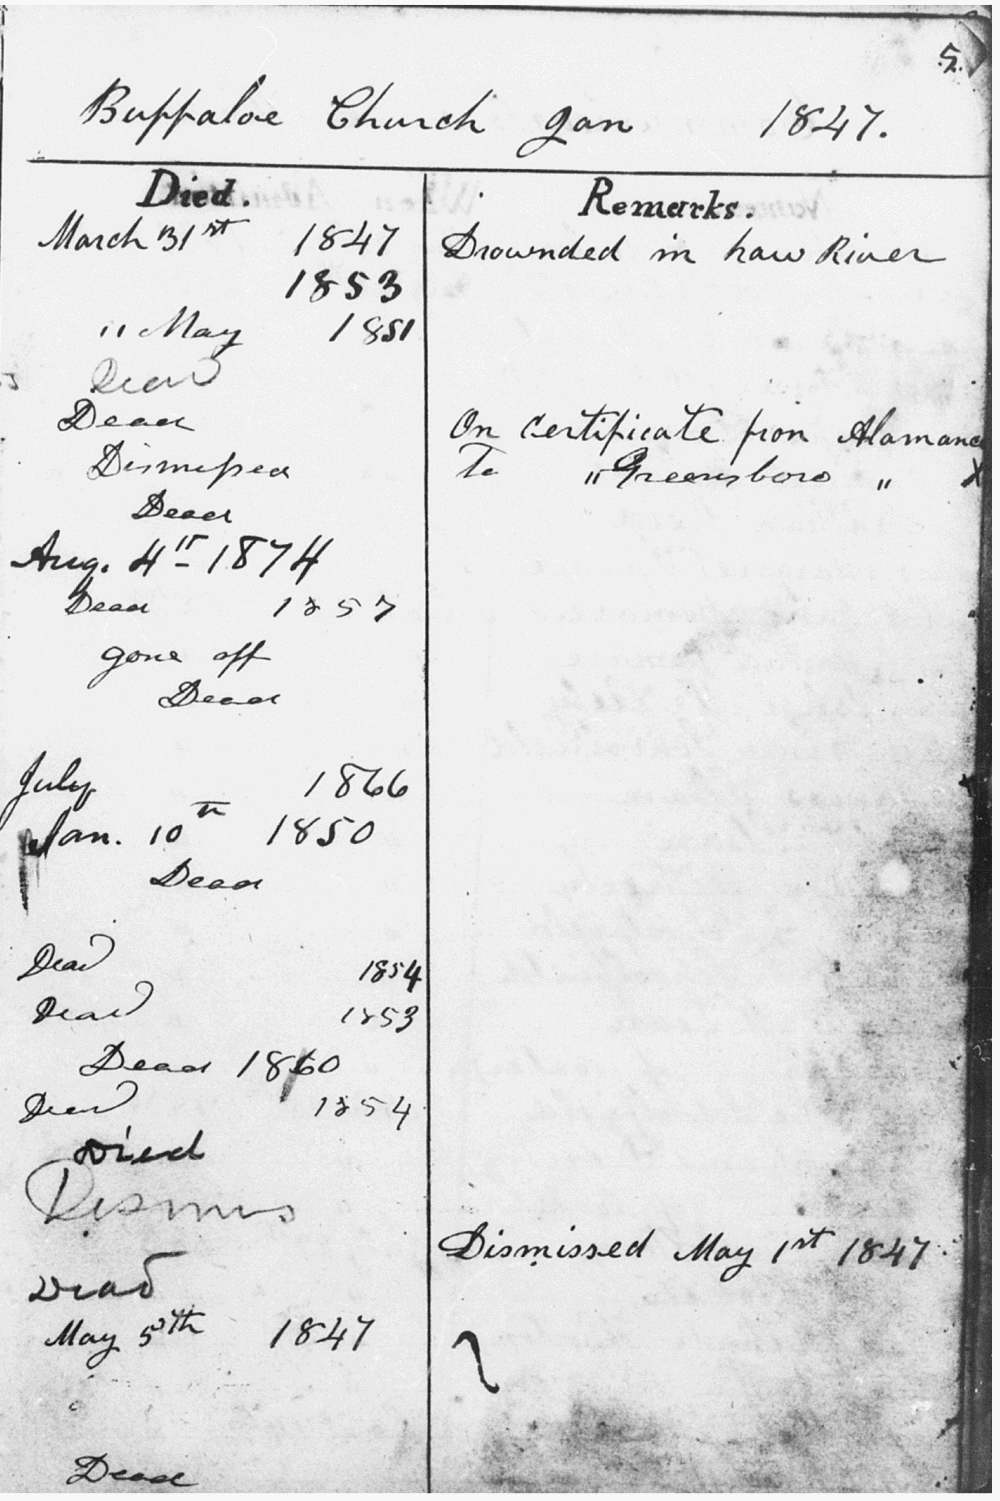 5.
Buffaloe Church Jan 1847.
Died. Remarks.
March 31st 1847 Drownded in haw River
1853
" May 1851
Dead
Dead On certificate from Alamance
Dismissed To " Greensboro " X
Dead
Aug. 4th 1874
Dead 1857
gone off
Dead
July 1866
Jan. 10th 1850
Dead
Dead 1854
Dead 1853
Dead 1860
Dead 1854
Died
Dismis
Dismissed May 1st 1847
Dead
May 5th 1847
Dead